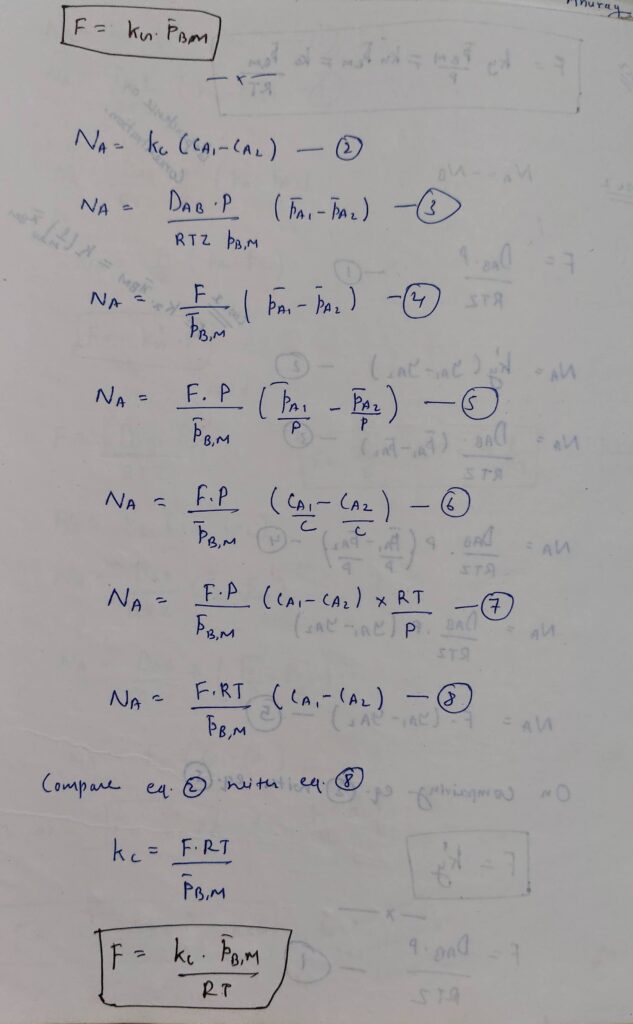 Anuray
F = kG. p̄B,M
— x —
NA = kc (CA1 - CA2) — ②
NA = DAB · P / RTZ p̄B,M (p̄A1 - p̄A2) — ③
NA = F / p̄B,M (p̄A1 - p̄A2) — ④
NA = F. P / p̄B,M (p̄A1 / P - p̄A2 / P) — ⑤
NA = F.P / p̄B,M (CA1 / C - CA2 / C) — ⑥
NA = F.P / p̄B,M (CA1 - CA2) x RT / P — ⑦
NA = F.RT / p̄B,M (CA1 - CA2) — ⑧
Compare eq. ② with eq. ⑧
kc = F.RT / p̄B,M
F = kc. p̄B,M / RT